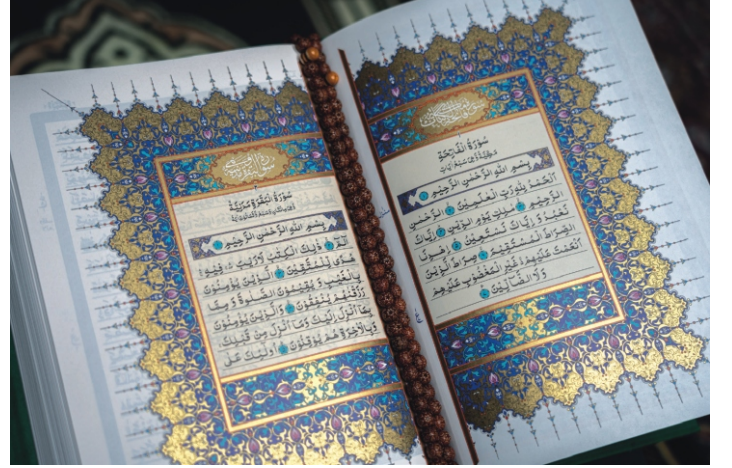 سُورَةُ الْفَاتِحَةِ
بِسْمِ اللّٰهِ الرَّحْمٰنِ الرَّحِيْمِ
اَلْحَمْدُ لِلّٰهِ رَبِّ الْعٰلَمِيْنَ الرَّحْمٰنِ
الرَّحِيْمِ مٰلِكِ يَوْمِ الدِّيْنِ اِيَّاكَ
نَعْبُدُ وَ اِيَّاكَ نَسْتَعِيْنُ اِهْدِنَا
الصِّرَاطَ الْمُسْتَقِيْمَ صِرَاطَ الَّذِيْنَ
اَنْعَمْتَ عَلَيْهِمْ غَيْرِ الْمَغْضُوْبِ عَلَيْهِمْ
وَلَا الضَّالِّيْنَ
سُورَةُ الْبَقَرَةِ مَدَنِيَّةٌ
بِسْمِ اللّٰهِ الرَّحْمٰنِ الرَّحِيْمِ
الٓمّٓ ذٰلِكَ الْكِتٰبُ لَارَيْبَ فِيْهِ
هُدًى لِلْمُتَّقِيْنَ الَّذِيْنَ يُؤْمِنُوْنَ
بِالْغَيْبِ وَ يُقِيْمُوْنَ الصَّلٰوةَ وَ مِمَّا
رَزَقْنٰهُمْ يُنْفِقُوْنَ وَالَّذِيْنَ يُؤْمِنُوْنَ
بِمَا اُنْزِلَ اِلَيْكَ وَمَا اُنْزِلَ مِنْ قَبْلِكَ
وَ بِالْاٰخِرَةِ هُمْ يُوْقِنُوْنَ اُولٰٓئِكَ عَلٰى